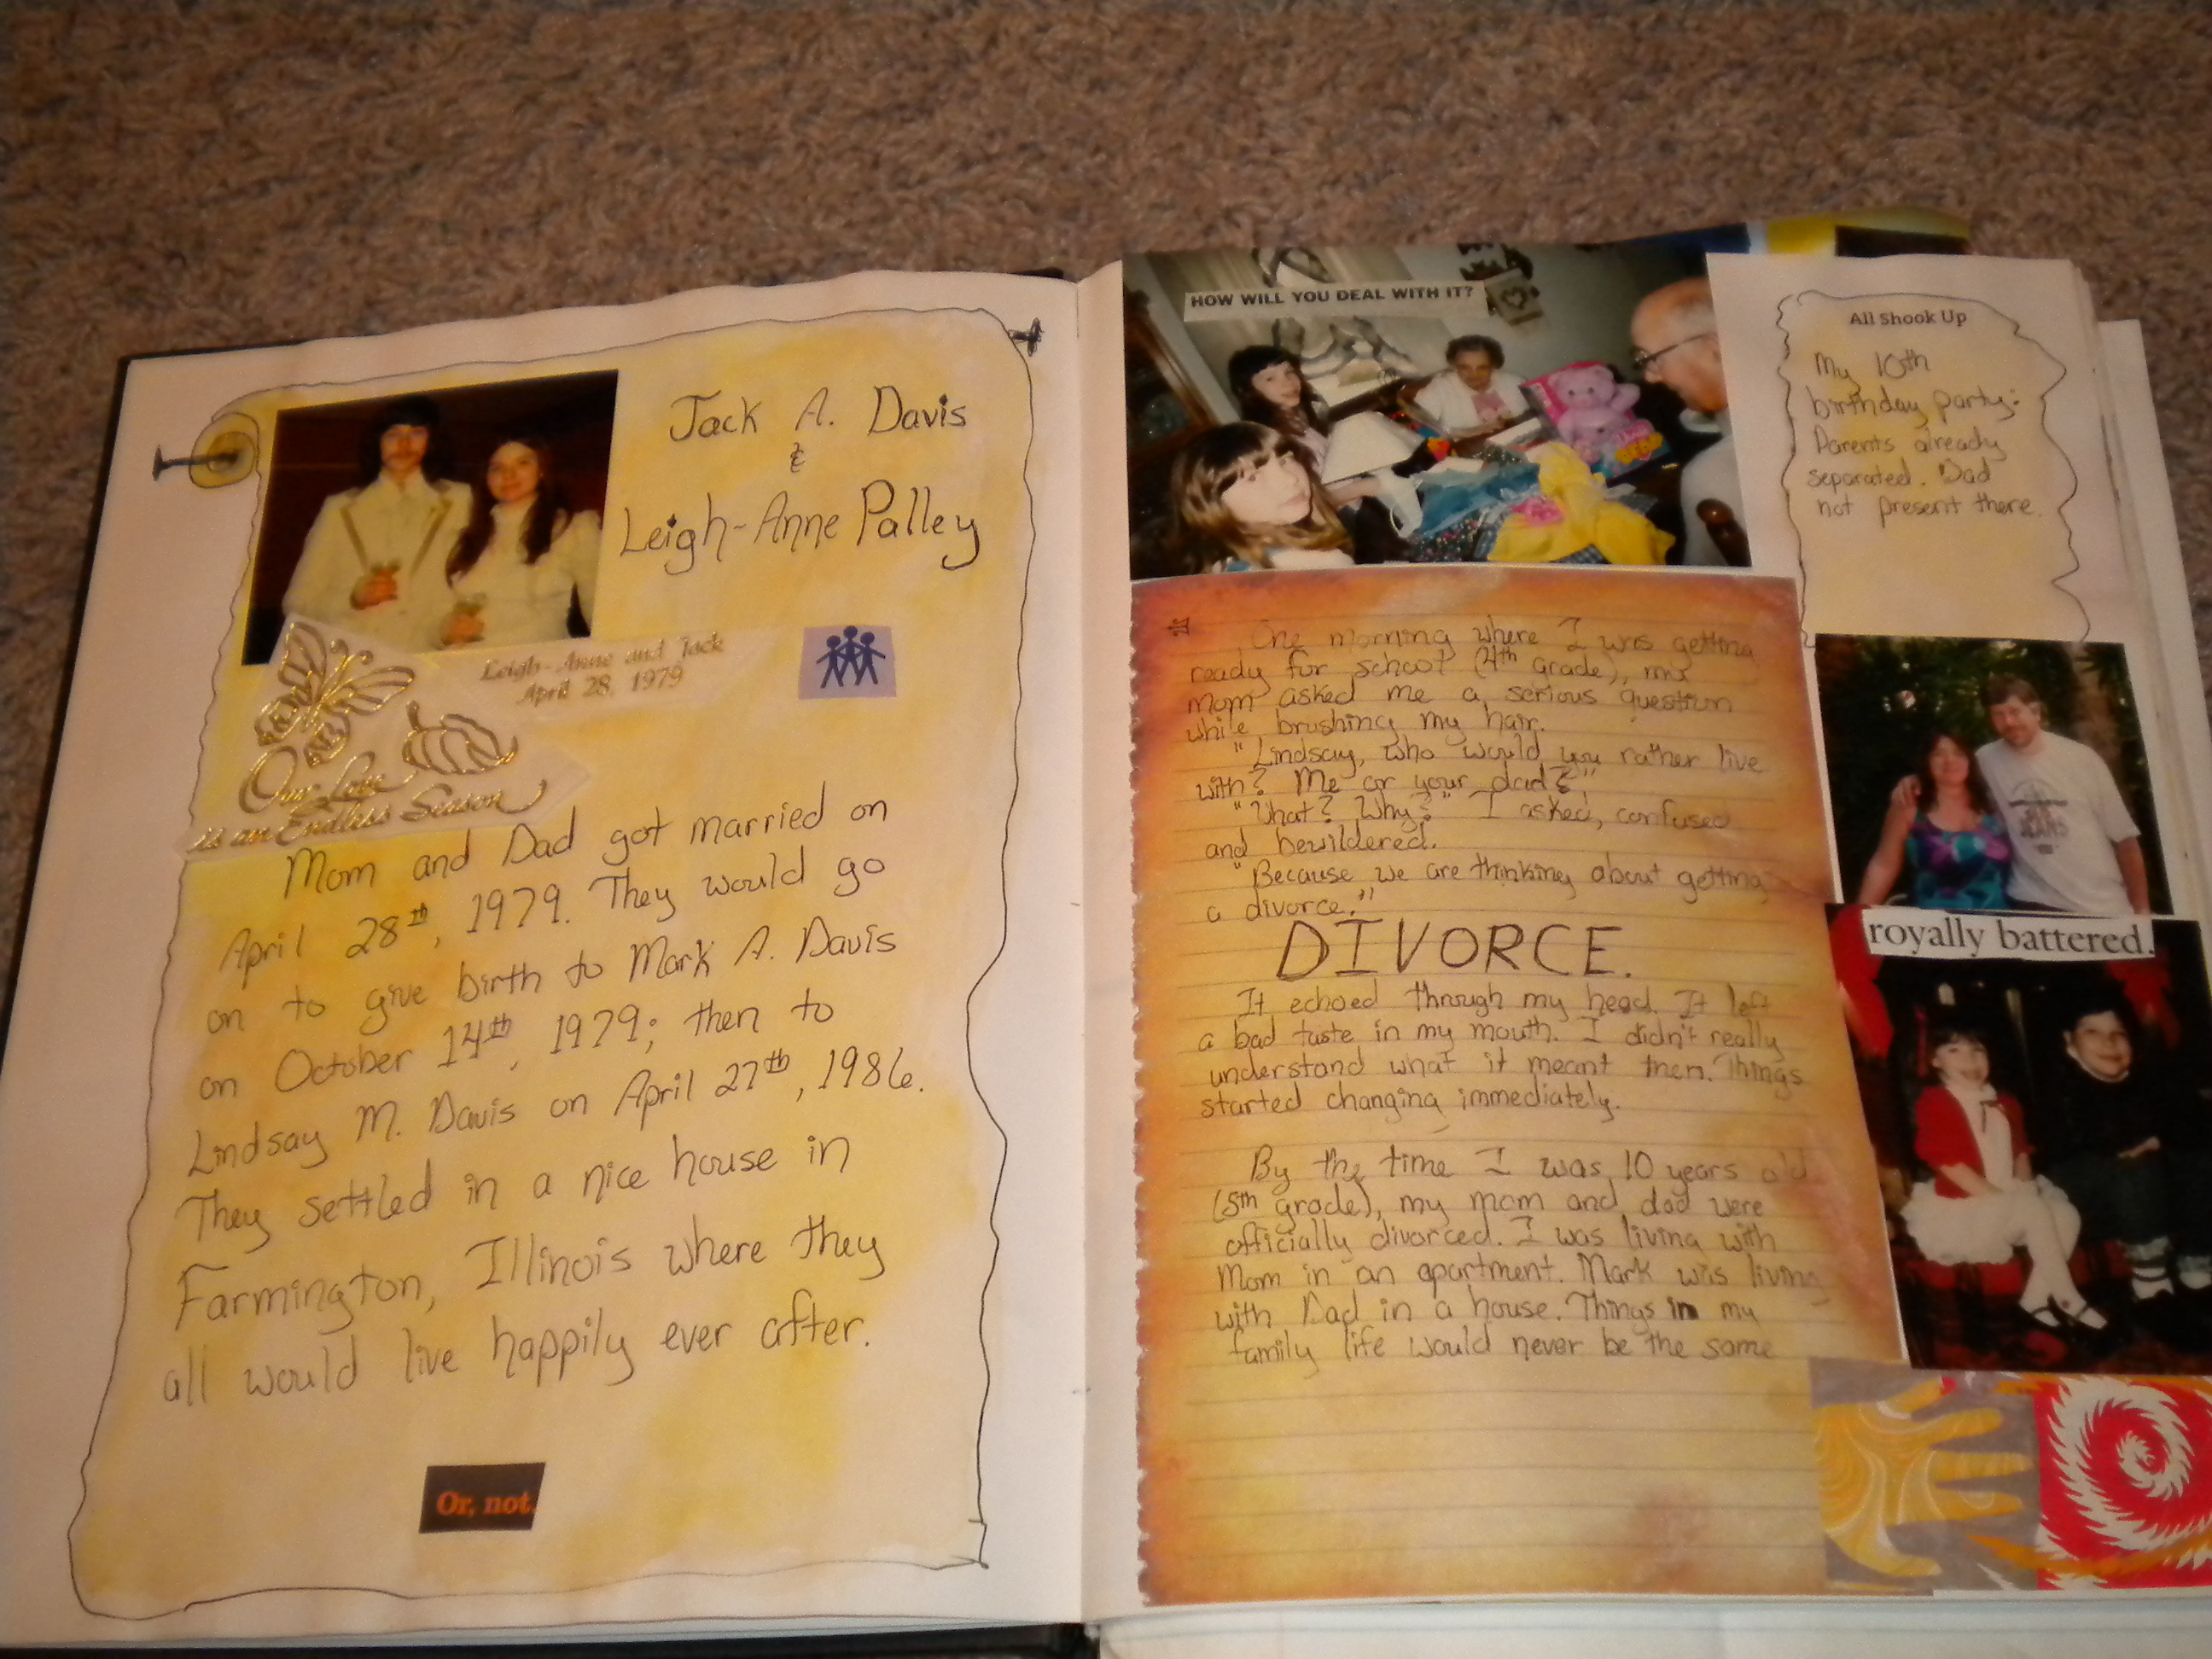 Jack A. Davis
&
Leigh-Anne Palley
Leigh-Anne and Jack
April 28, 1979
Our Love
is an Endless Season
Mom and Dad got married on
April 28th, 1979. They would go
on to give birth to Mark A. Davis
on October 14th, 1979; then to
Lindsay M. Davis on April 27th, 1986.
They settled in a nice house in
Farmington, Illinois where they
all would live happily ever after.
Or, not.
HOW WILL YOU DEAL WITH IT?
All Shook Up
My 10th
birthday party:
Parents already
separated. Dad
not present there.
One morning where I was getting
ready for school (4th grade), my
mom asked me a serious question
while brushing my hair.
"Lindsay, who would you rather live
with? Me or your dad?"
"What? Why?" I asked, confused
and bewildered.
"Because we are thinking about getting
a divorce."
DIVORCE.
It echoed through my head. It left
a bad taste in my mouth. I didn't really
understand what it meant then. Things
started changing immediately.
By the time I was 10 years old
(5th grade), my mom and dad were
officially divorced. I was living with
Mom in an apartment. Mark was living
with Dad in a house. Things in my
family life would never be the same
royally battered.